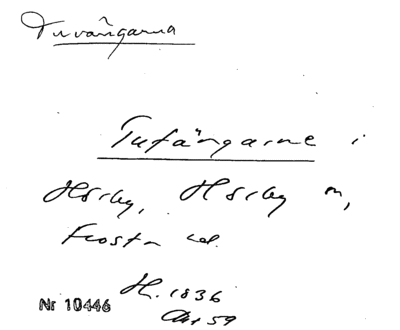 Tuvängarna
Tufängarne i
Hörby, Hörby sn,
Frosta hd.
Nr 10446
H. 1836
Akt 59